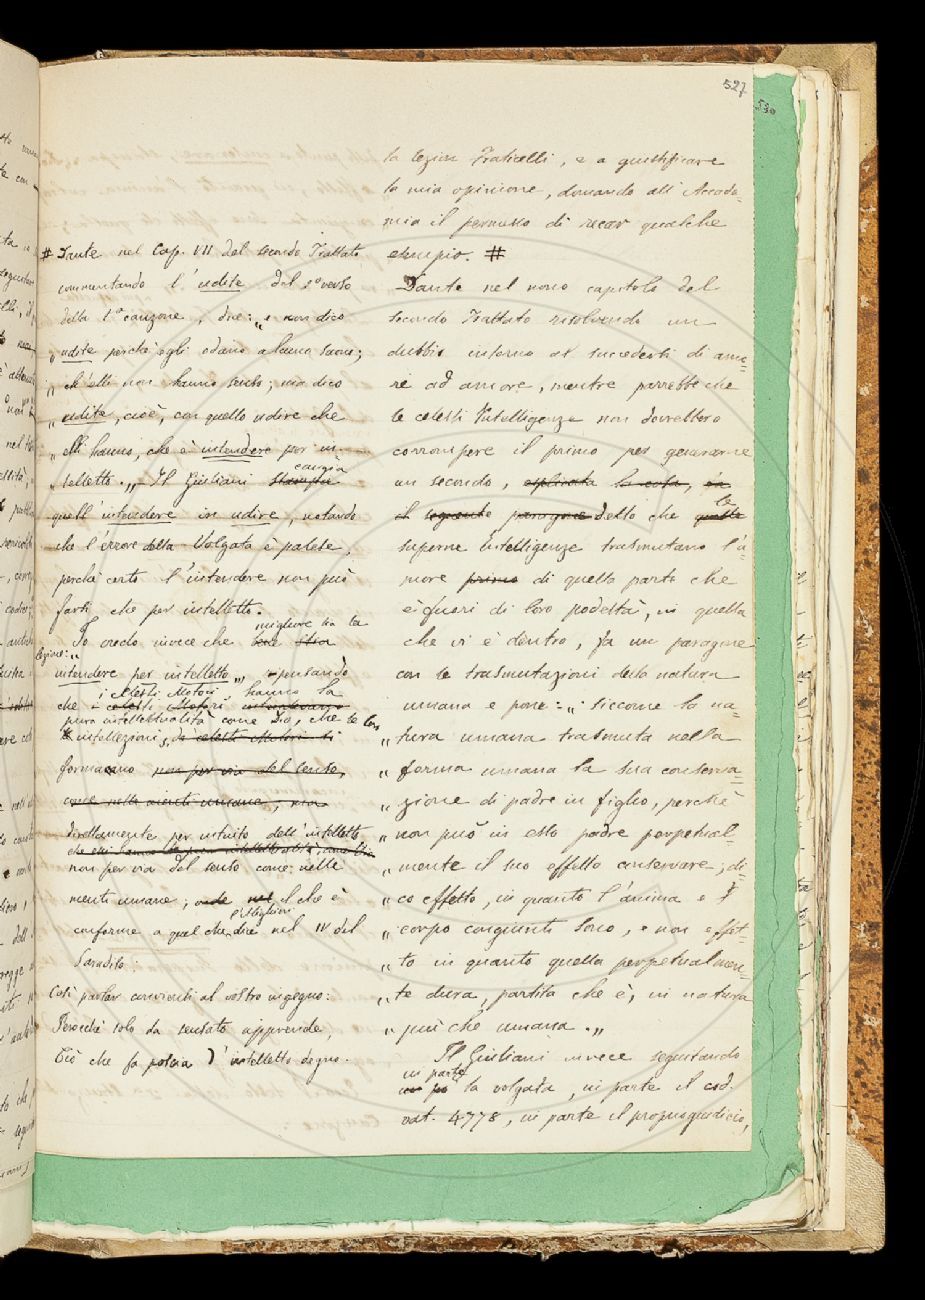 527
530
la lezion Fraticelli, e a giustificare
la mia opinione, domando all'Accade-
mia il permesso di recar qualche
esempio. #
Dante nel nono capitolo del
secondo Trattato risolvendo un
dubbio intorno al succedersi di amo-
re ad amore, mentre parrebbe che
le celesti Intelligenze non dovrebbero
corrompere il primo per generarne
un secondo, esplicata la cosa, ed
il seguente paragone detto che quelle le
superne Intelligenze trasmutano l'a-
more primo di quella parte che
è fuori di loro podestà, in quella
che vi è dentro, fa un paragone
con le trasmutazioni della natura
umana e pone: „ siccome la na-
„ tura umana trasmuta nella
„ forma umana la sua conserva-
„ zione di padre in figlio, perchè
„ non può in esso padre perpetual-
„ mente il suo effetto conservare, di-
„ co effetto, in quanto l'anima e 'l
„ corpo congiunti sono, e non effet-
„ to in quanto quella perpetualmen-
„ te dura, partita che è, in natura
„ più che umana. „
Il Giuliani invece seguitando
in parte
un po' la volgata, in parte il cod.
vat. 4778, in parte il proprio giudicio,
# Dante nel Cap. VII del secondo Trattato
commentando l'udite del 1° verso
della 1ª canzone, dice: „ e non dico
„ udite perchè egli odano alcuno suono;
„ ch'elli non hanno senso; ma dico
„ udite, cioè, con quello udire che
„ elli hanno, che è intendere per in-
„ telletto. „ Il Giuliani stampa
cangia
quell'intendere in udire, notando
che l'errore della Volgata è palese,
perchè certo l'intendere non può
farsi che per intelletto.
migliore sia la
Io credo invece che
lezione: „
intendere per intelletto „, pensando
i celesti Motori, hanno la
che i celesti Motori intendevano
pura intellettualità come Dio, che le loro
intellezioni, i celesti Motori si
formavano non per via del senso,
come nelle menti umane, ma
direttamente per intuito dell'intelletto
che essi hanno la pura intellettualità, come Dio
non per via del senso come nelle
menti umane; onde nel il che è
l'Alighieri
conforme a quel che dice nel IV del
Paradiso.
Così parlar conviensi al vostro ingegno:
Perocchè solo da sensato apprende
Ciò che fa poscia d'intelletto degno.